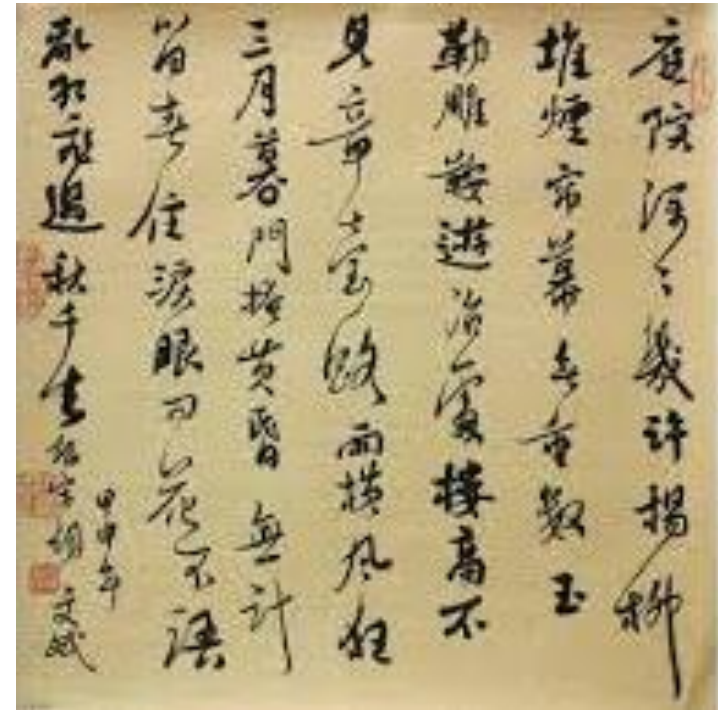 庭院深々幾許楊柳
堆煙帘幕無重數玉
勒雕鞍遊冶處樓高不
見章臺路雨橫風狂
三月暮門掩黃昏無計
留春住淚眼问花花不語
亂紅飛過秋千去
甲申年